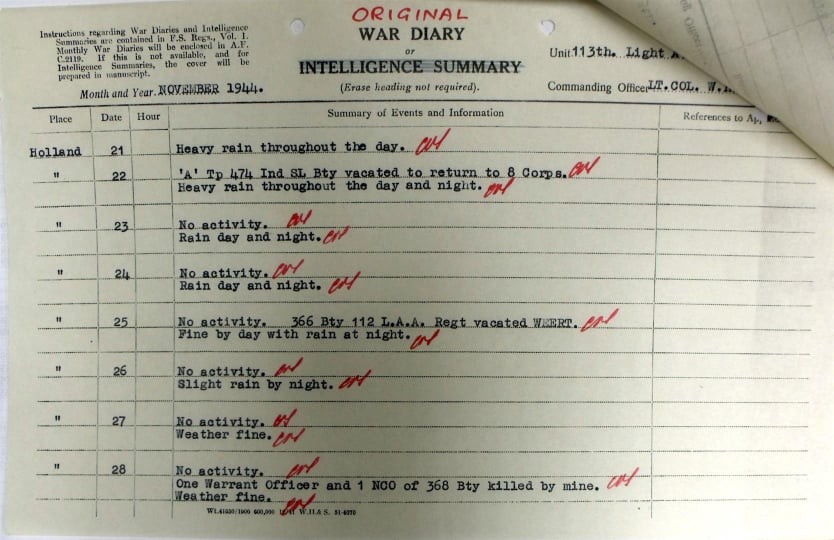 ORIGINAL
Instructions regarding War Diaries and Intelligence
Summaries are contained in F.S. Regs., Vol. I.
Monthly War Diaries will be enclosed in A.F.
C.2119. If this is not available, and for
Intelligence Summaries, the cover will be
prepared in manuscript.
Month and Year. NOVEMBER 1944.
WAR DIARY
or
INTELLIGENCE SUMMARY
(Erase heading not required).
Unit 113th. Light A.
Commanding Officer LT. COL. W.
Place Date Hour Summary of Events and Information References to
Holland 21 Heavy rain throughout the day.
" 22 'A' Tp 474 Ind SL Bty vacated to return to 8 Corps.
Heavy rain throughout the day and night.
" 23 No activity.
Rain day and night.
" 24 No activity.
Rain day and night.
" 25 No activity. 366 Bty 112 L.A.A. Regt vacated WEERT.
Fine by day with rain at night.
" 26 No activity.
Slight rain by night.
" 27 No activity.
Weather fine.
" 28 No activity.
One Warrant Officer and 1 NCO of 368 Bty killed by mine.
Weather fine.
600,000 W.H.& S. 51-6070